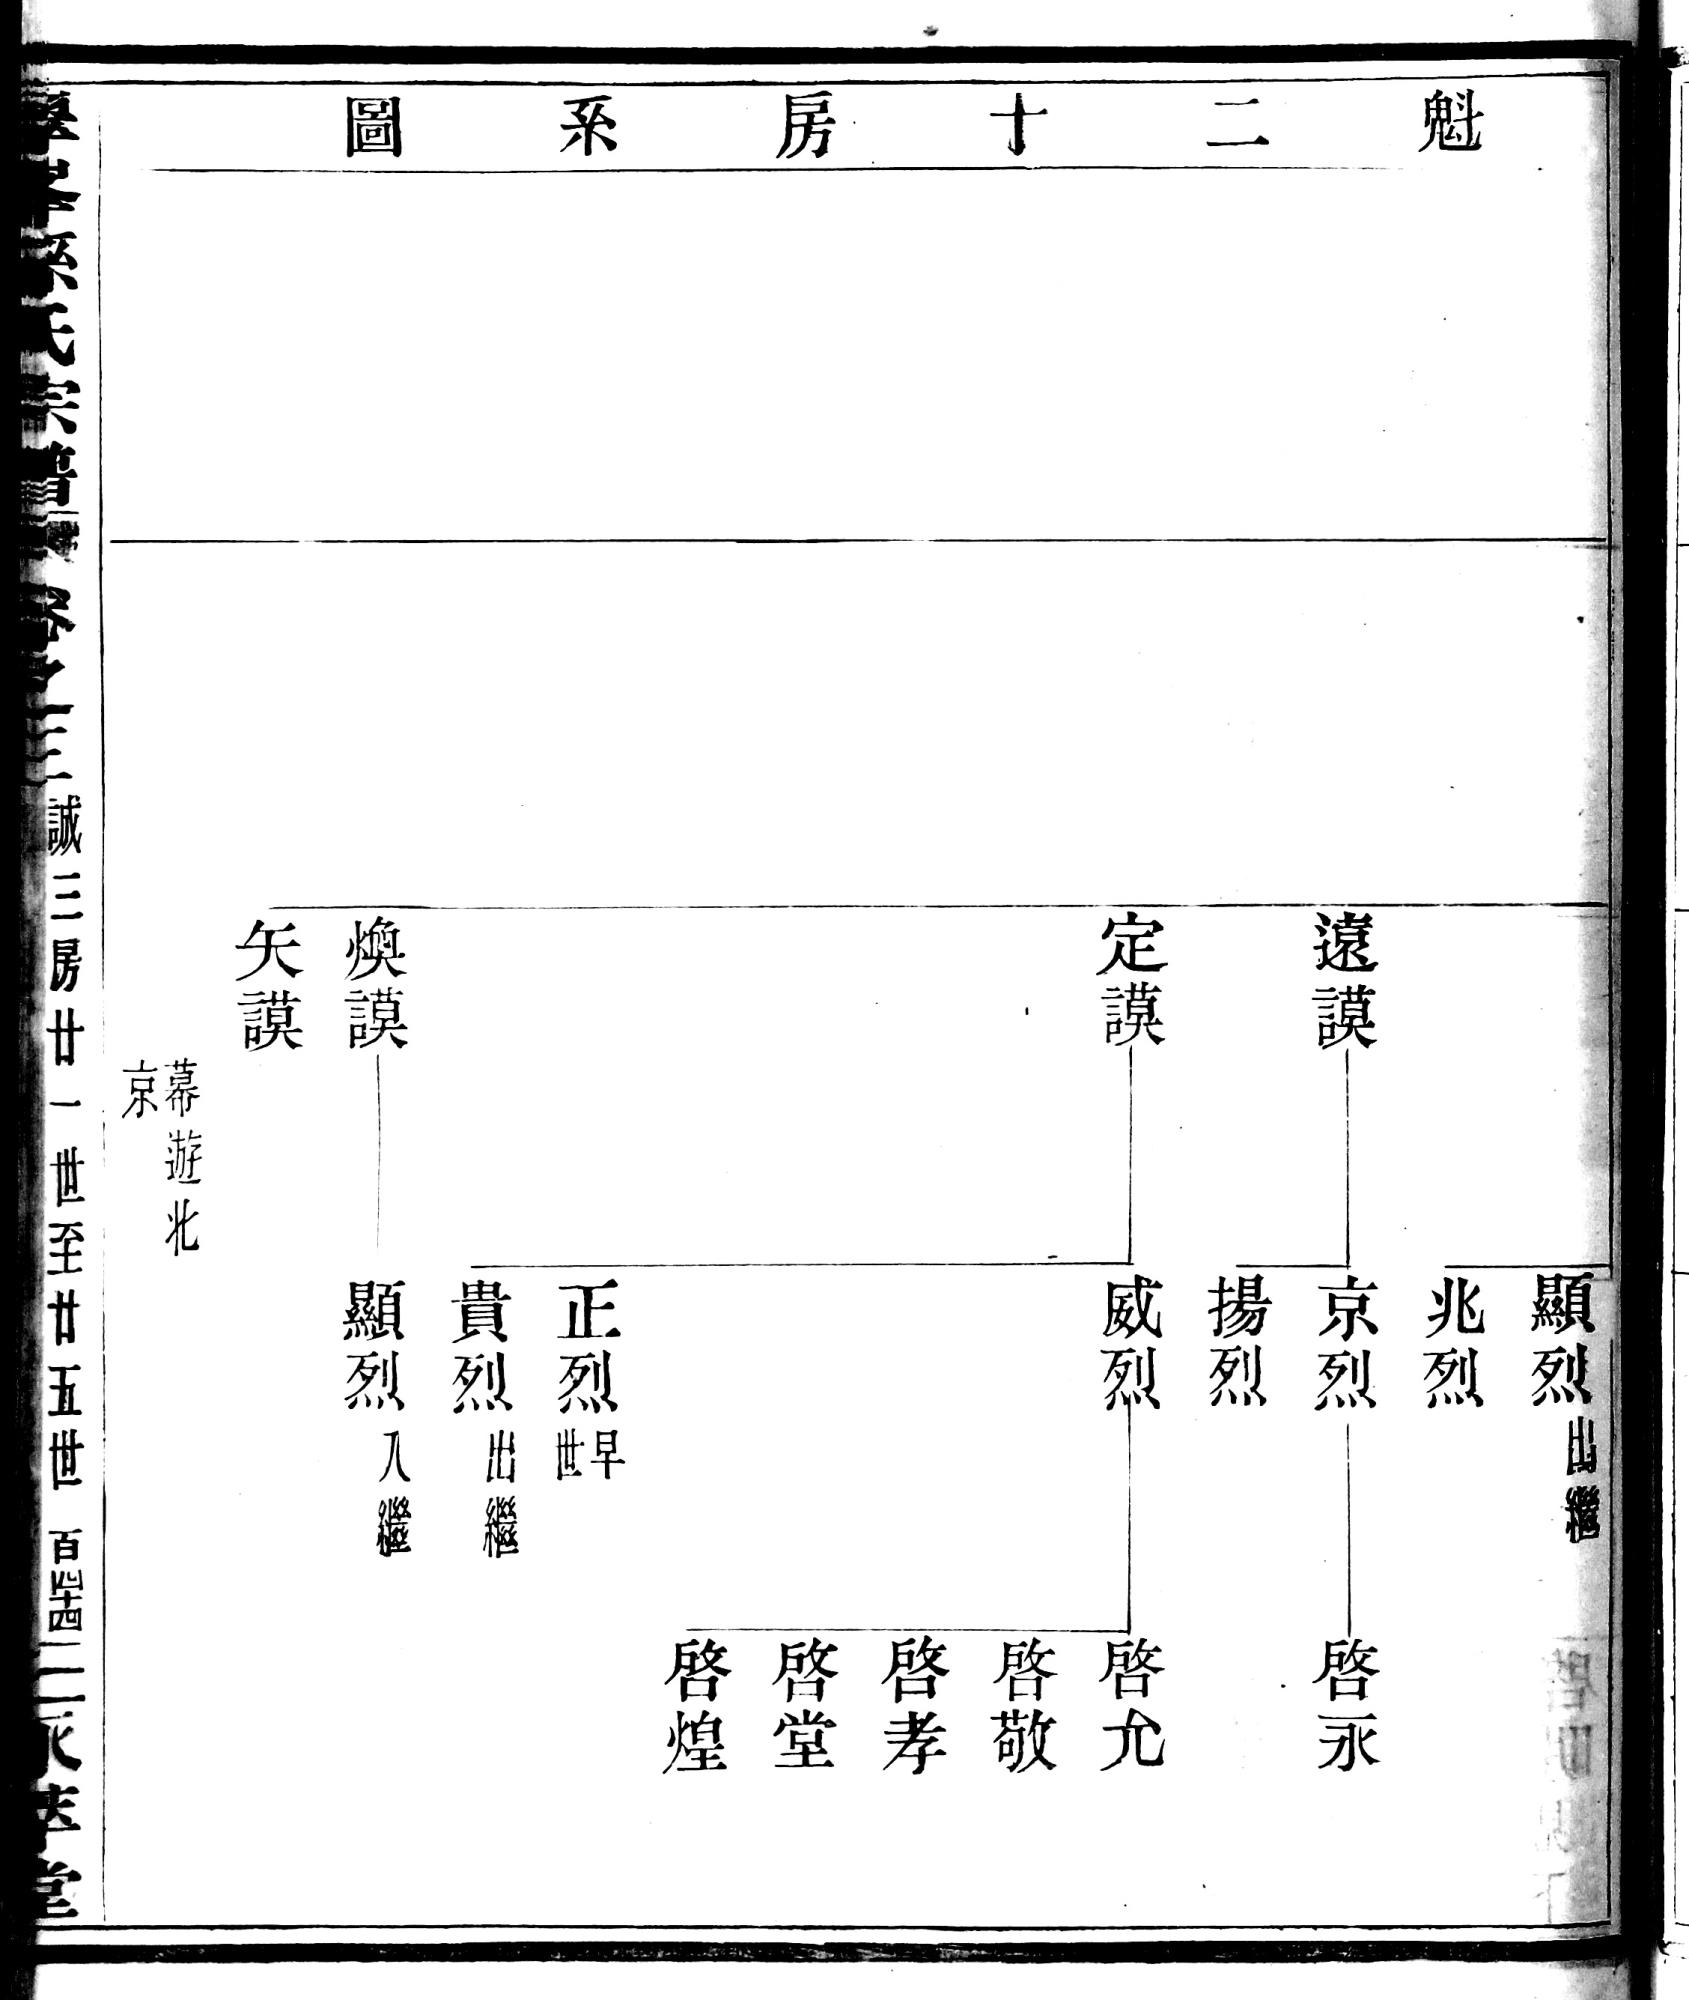 魁二十房系圖
遠謨
定謨
煥謨
矢謨
幕遊北
京
顯烈出繼
兆烈
京烈
揚烈
威烈
正烈早世
貴烈出繼
顯烈入繼
啓永
啓允
啓敬
啓孝
啓堂
啓煌
孫氏宗譜
卷之三
誠三房廿一世至廿五世
百四十四